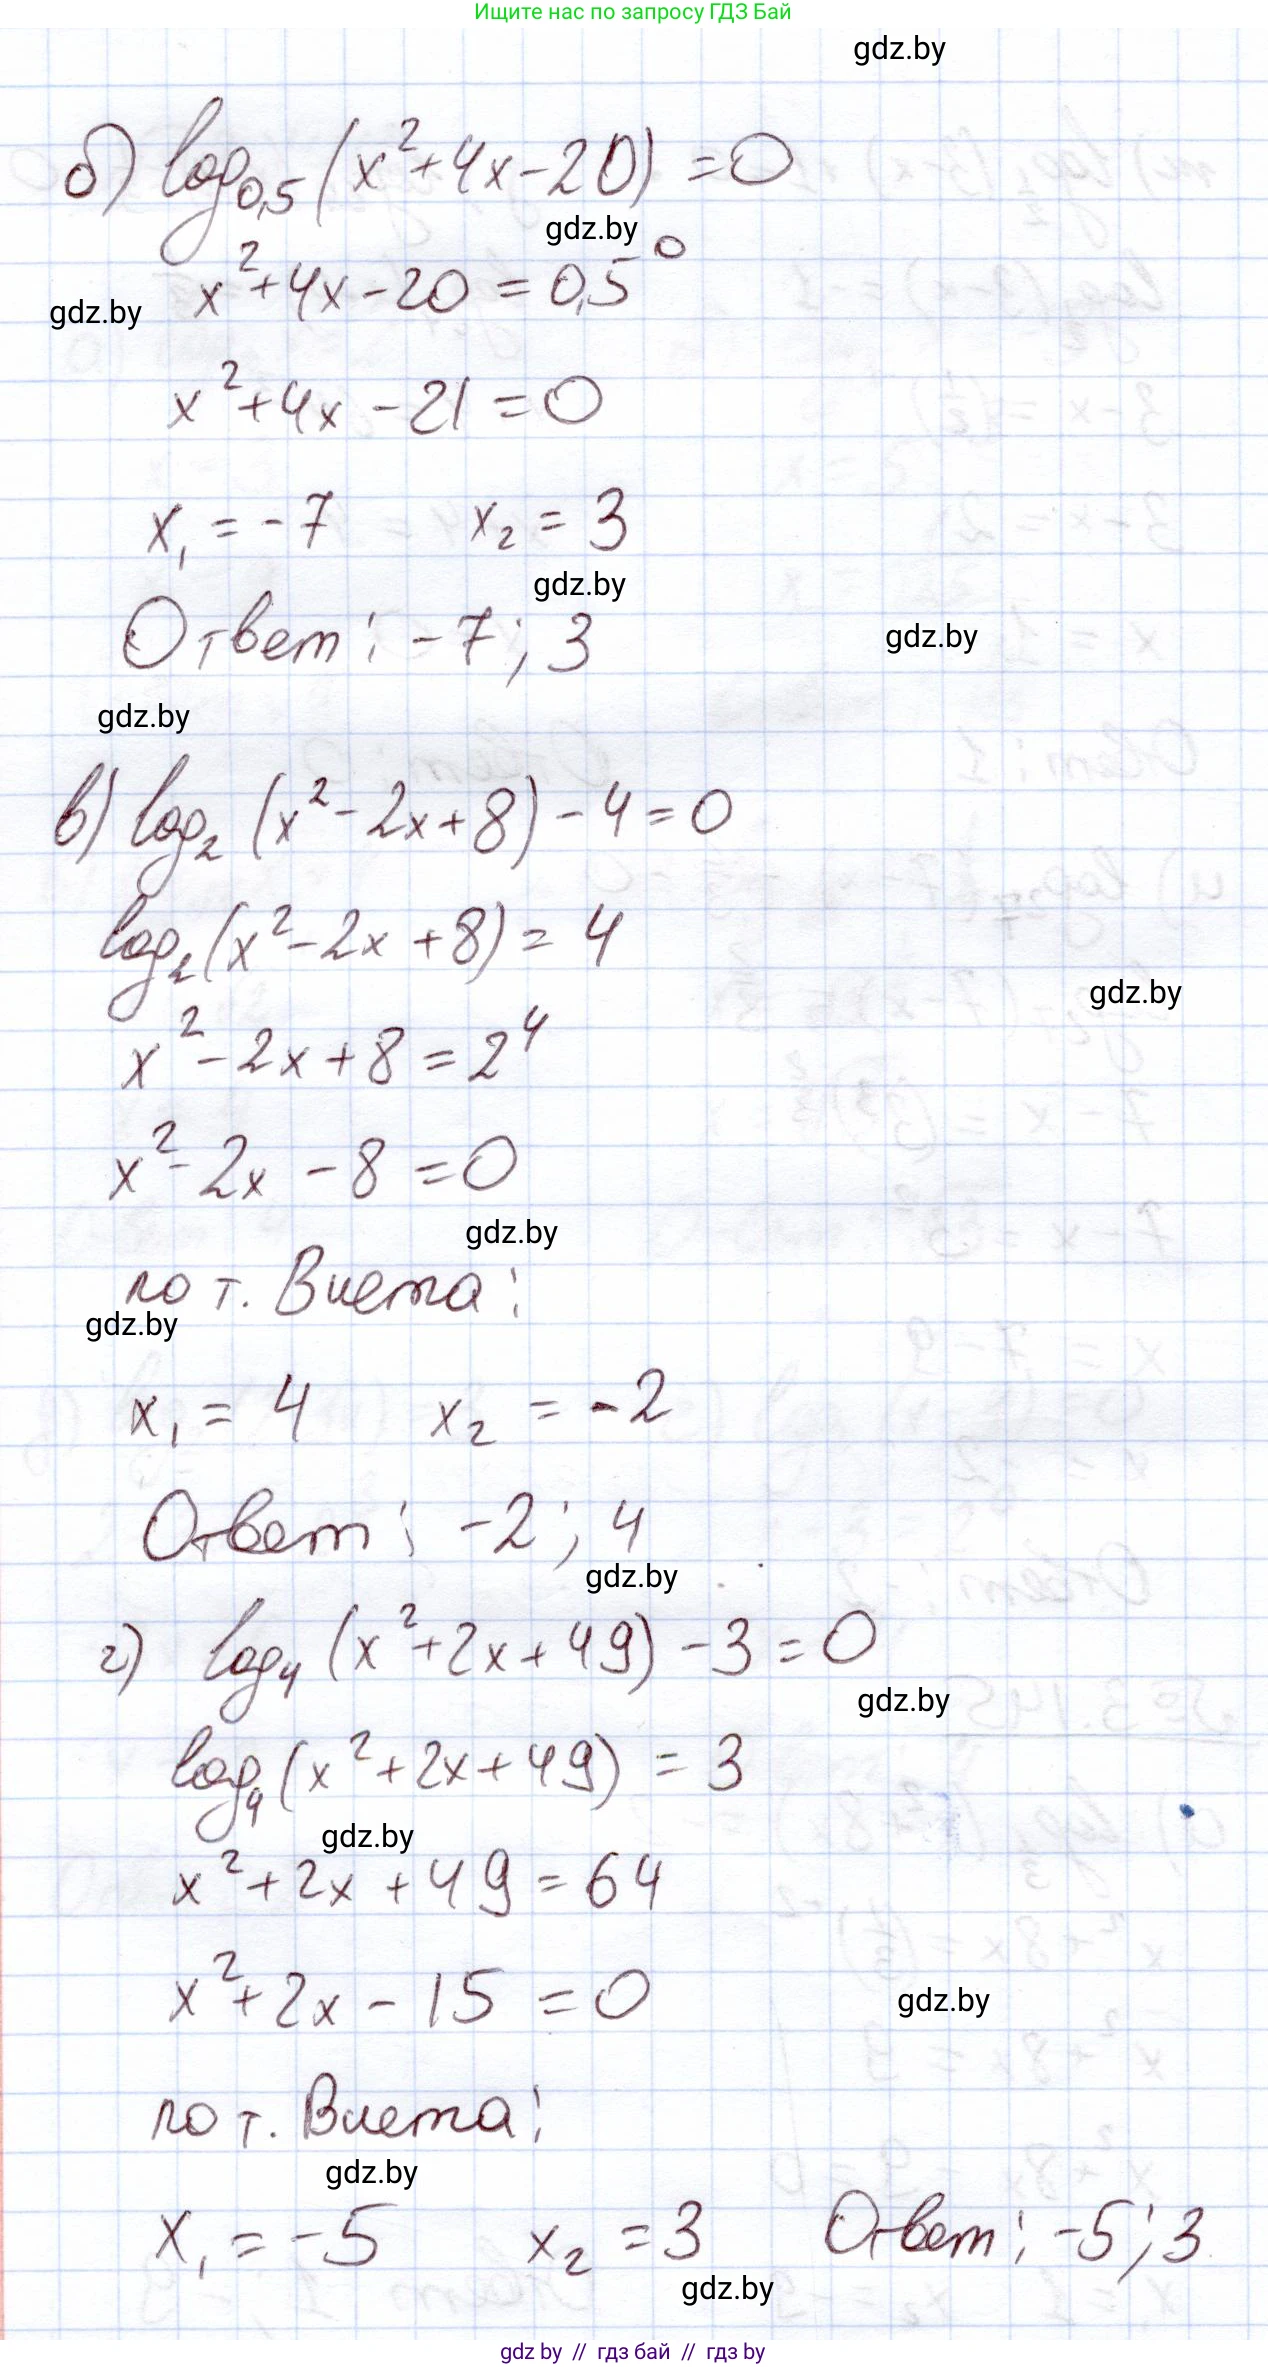 Ищите нас по запросу ГДЗ Бай
gdz.by
б) log₀,₅ (x² + 4x - 20) = 0
gdz.by
x² + 4x - 20 = 0,5⁰
gdz.by
x² + 4x - 21 = 0
x₁ = -7 x₂ = 3
gdz.by
Ответ: -7; 3
gdz.by
gdz.by
в) log₂ (x² - 2x + 8) - 4 = 0
log₂ (x² - 2x + 8) = 4
gdz.by
x² - 2x + 8 = 2⁴
x² - 2x - 8 = 0
gdz.by
по т. Виета:
gdz.by
x₁ = 4 x₂ = -2
Ответ: -2; 4
gdz.by
г) log₄ (x² + 2x + 49) - 3 = 0
gdz.by
log₄ (x² + 2x + 49) = 3
gdz.by
x² + 2x + 49 = 64
x² + 2x - 15 = 0
gdz.by
по т. Виета:
gdz.by
x₁ = -5 x₂ = 3 Ответ: -5; 3
gdz.by
gdz by // гдз бай // гдз by